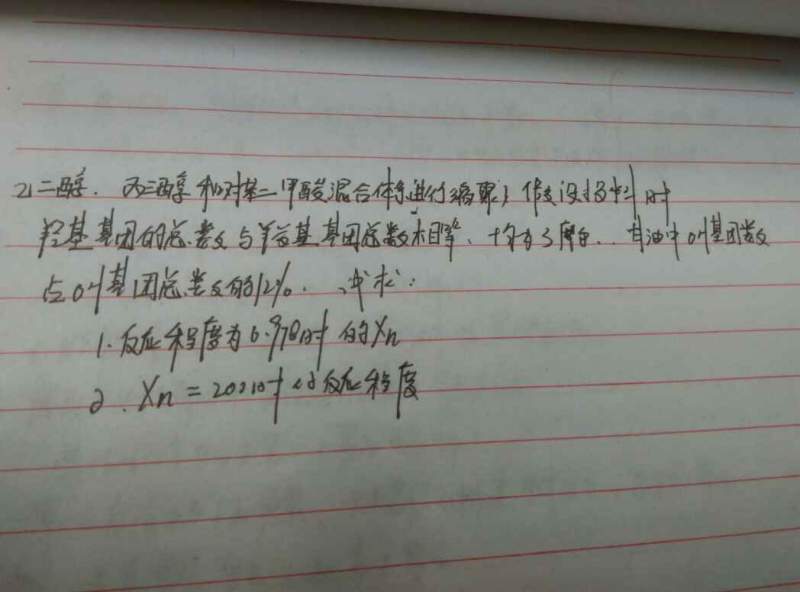 乙二醇. 丙三醇和对苯二甲酸混合体系进行缩聚, 假设投料时
羟基基团的总数与羧基基团总数相等, 均为3摩尔. 甘油中OH基团数
占OH基团总数的12%. 求:
1. 反应程度为0.970时的Xn
2. Xn = 200时的反应程度